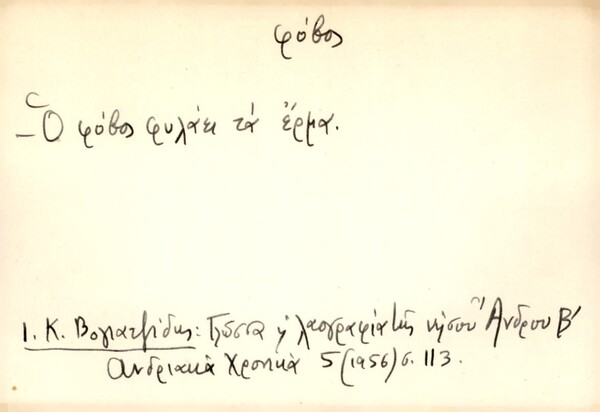 φόβος
– Ὁ φόβος φυλάει τά ἔρμα.
Ι. Κ. Βογιατζίδης: Γλῶσσα κ' λαογραφία τῆς νήσου Ἄνδρου Β'
Ἀνδριακὰ Χρονικὰ 5 (1956) σ. 113.